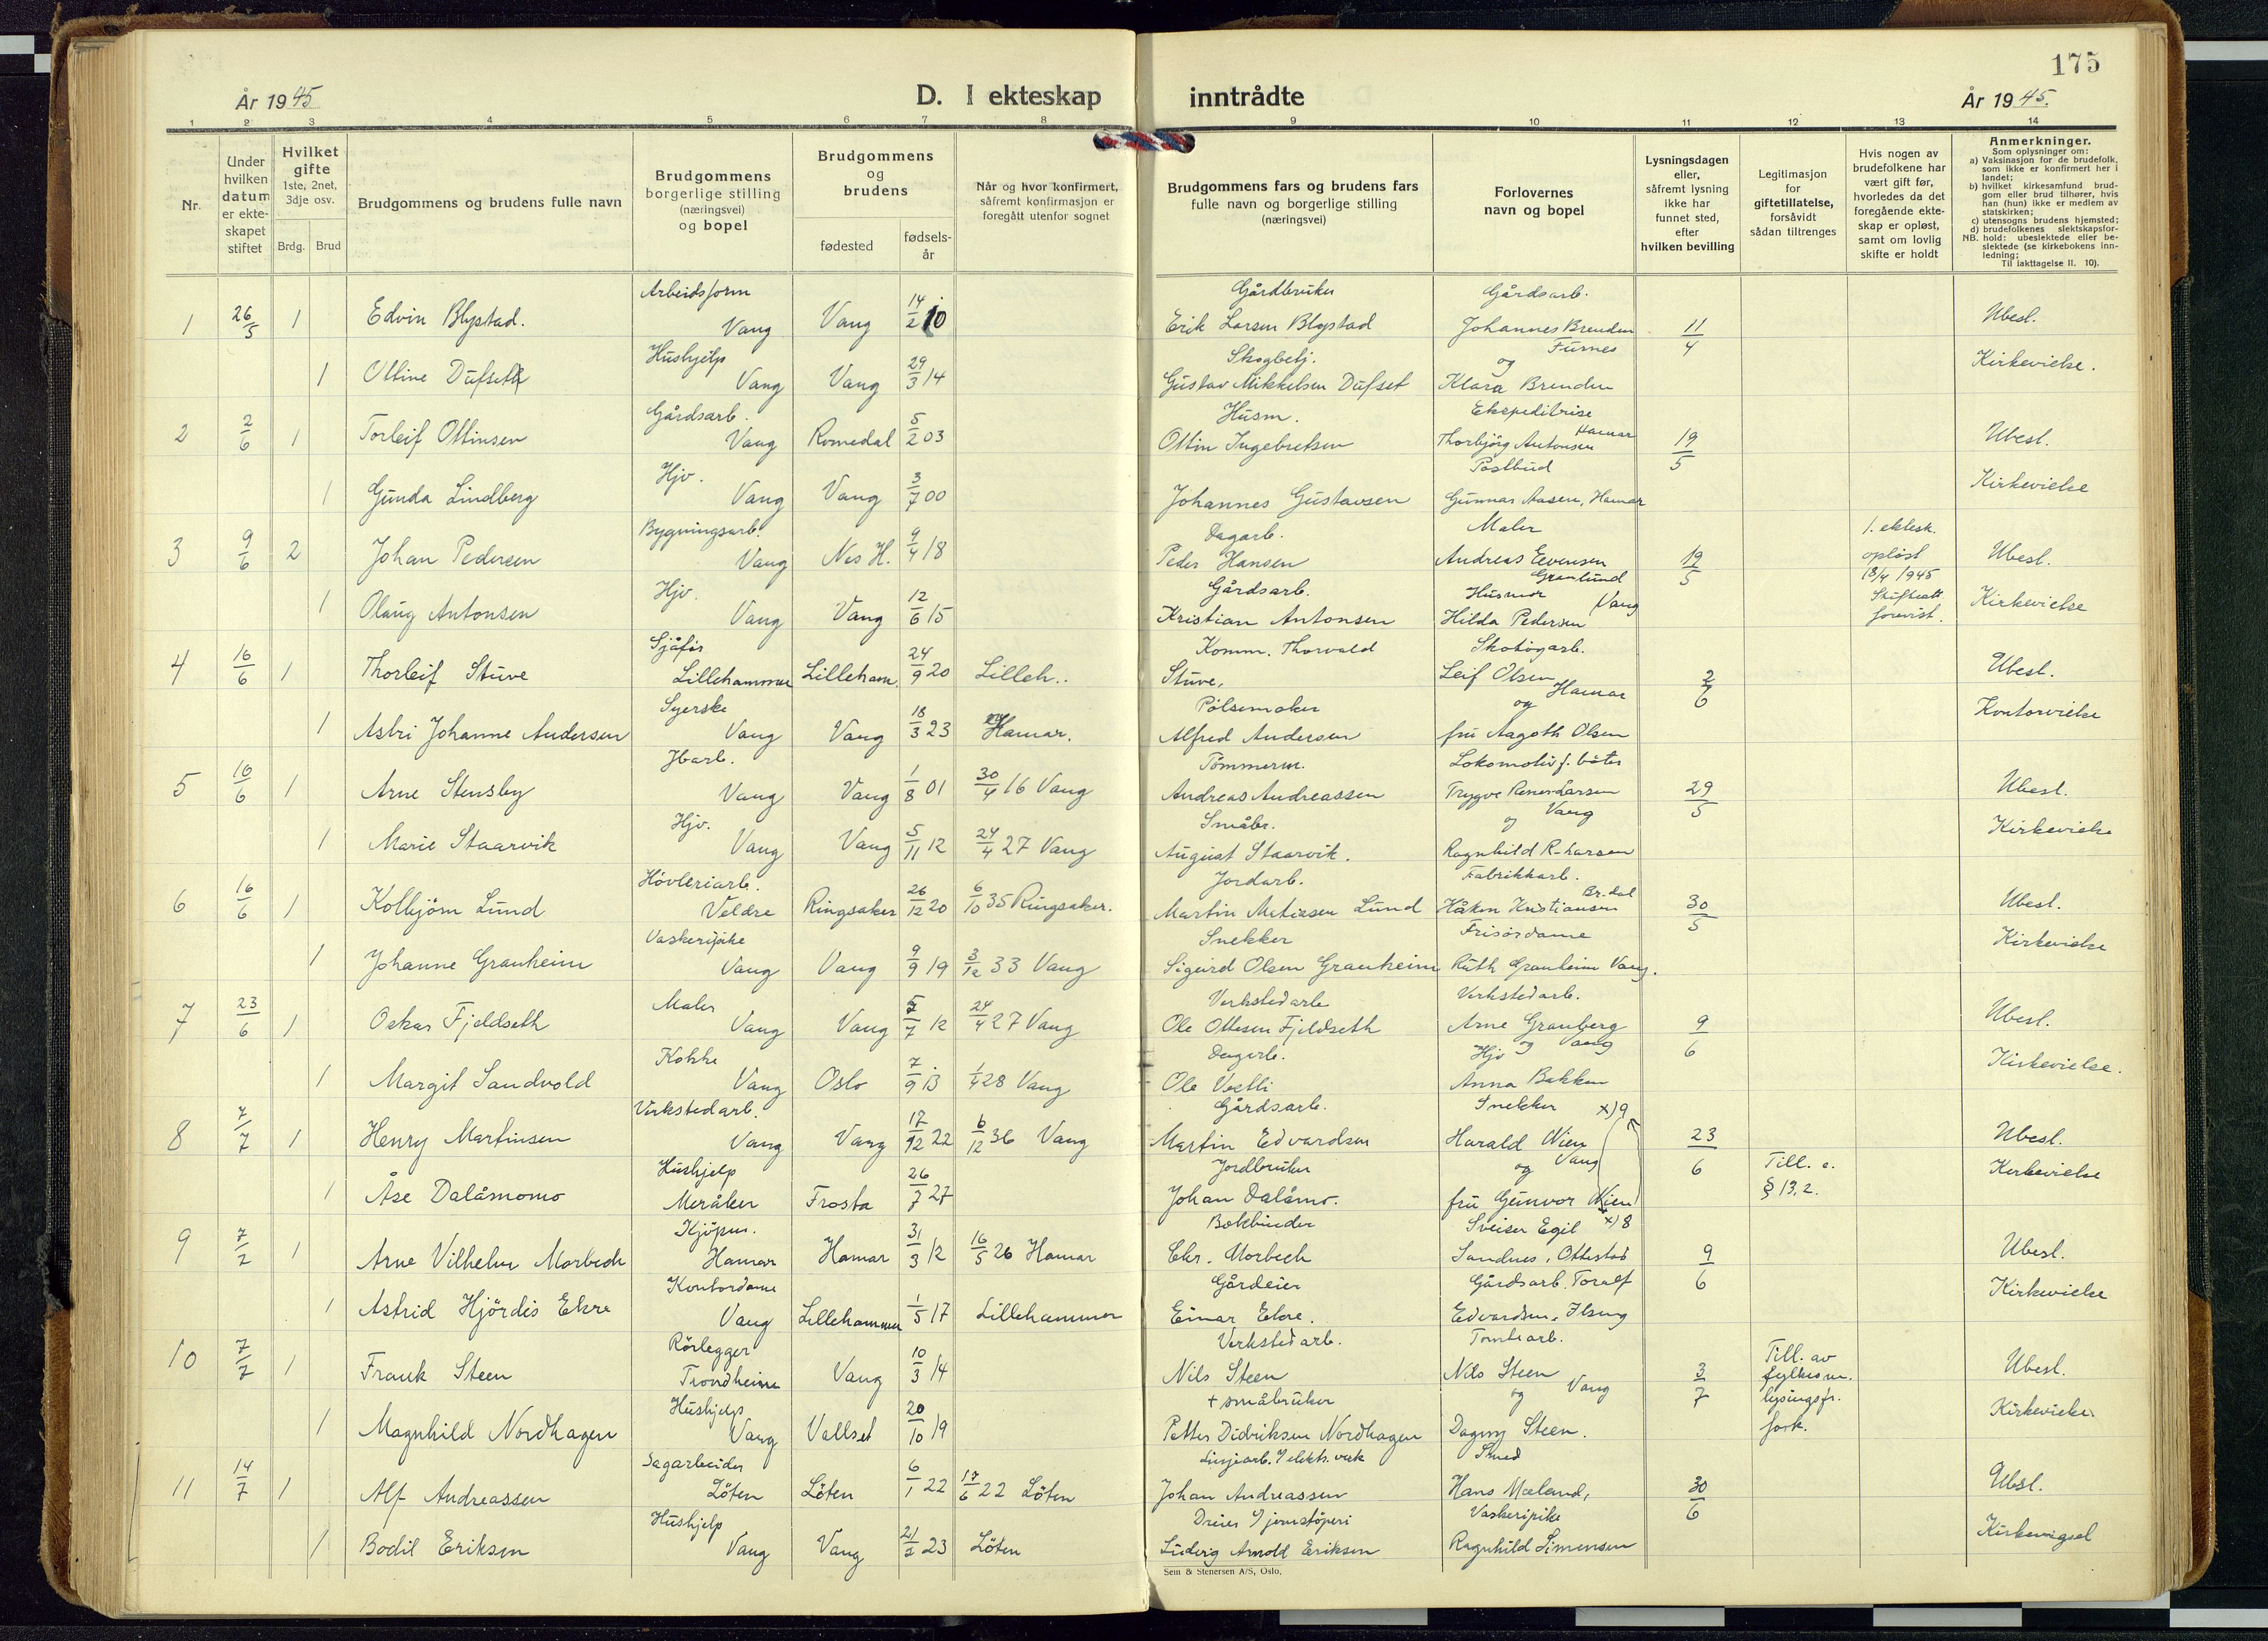 175
År 1945
D. I ekteskap inntrådte
År 1945.
1 2 3 4 5 6 7 8 9 10 11 12 13 14
Nr.
Under hvilken datum er ekteskapet stiftet
Hvilket gifte 1ste, 2net, 3dje osv.
Brdg. Brud
Brudgommens og brudens fulle navn
Brudgommens borgerlige stilling (næringsvei) og bopel
Brudgommens og brudens
fødested
fødsels-år
Når og hvor konfirmert, såfremt konfirmasjon er foregått utenfor sognet
Brudgommens fars og brudens fars fulle navn og borgerlige stilling (næringsvei)
Forlovernes navn og bopel
Lysningsdagen eller, såfremt lysning ikke har funnet sted, efter hvilken bevilling
Legitimasjon for giftetillatelse, forsåvidt sådan tiltrenges
Hvis nogen av brudefolkene har vært gift før, hvorledes da det foregående ekteskap er opløst, samt om lovlig skifte er holdt
Anmerkninger.
Som oplysninger om:
a) Vaksinasjon for de brudefolk, som ikke er konfirmert her i landet;
b) hvilket kirkesamfund brudgom eller brud tilhører, hvis han (hun) ikke er medlem av statskirken;
c) utensogns brudens hjemsted;
d) brudefolkenes slektskapsforhold: ubeslektede eller beslektede (se kirkebokens innledning;
NB. Til iakttagelse II. 10).
1 26/5 1 Edvin Blystad. Arbeidsform Vang Vang 14/2 10 Gårdbruker Erik Larsen Blystad Gårdsarb. Johannes Brenden Furnes 11/4 Ubesl.
1 Olline Dufseth Hushjelp Vang Vang 29/3 14 Skogbetj. Gustav Mikkelsen Dufset og Klara Brenden Kirkevielse.
2 2/6 1 Torleif Ottinsen Gårdsarb. Vang Romedal 5/2 03 Husm. Ottin Ingebretsen Ekspeditrise Thorbjörg Antonsen Hamar 19/5 Ubesl.
1 Gunda Lindberg Hjv. Vang Vang 3/7 00 Johannes Gustavsen Postbud Gunnar Aasen, Hamar Kirkevielse
3 9/6 2 Johan Pedersen Bygningsarb. Vang Nes H. 9/4 18 Dagarb. Peder Hansen Maler Andreas Evensen Granlund 12/5 1. ektesk. opløst 18/4 1945 Skifteatt. forevist. Ubesl.
1 Olaug Antonsen Hjv. Vang Vang 12/6 15 Gårdsarb. Kristian Antonsen Husmor Hilda Pedersen Vang Kirkevielse
4 16/6 1 Thorleif Stuve Sjåfør Lillehammer Lilleham. 24/9 20 Lilleh.. Komm. Thorvald Stuve, Skotöyarb. Leif Olsen Hamar 2/6 Ubesl.
1 Astri Johanne Andersen Syerske Vang Vang 18/3 23 Hamar. Pølsemaker Alfred Andersen og fru Aagoth Olsen Kontorvielse
5 16/6 1 Arne Stensby Jbarb. Vang Vang 1/8 01 30/4 16 Vang Tömmerm. Andreas Andreassen Lokomotivf. Trygve Larsen Vang 29/5 Ubesl.
1 Marie Staarvik Hjv. Vang Vang 5/11 12 24/4 27 Vang Småbr. August Staarvik. og Ragnhild R-Larsen Kirkevielse
6 16/6 1 Kolbjörn Lund Høvleriarb. Veldre Ringsaker 26/12 20 6/10 35 Ringsaker. Jordarb. Martin Matisen Lund Fabrikkarb. Håkon Kristiansen Br.dal 30/5 Ubesl.
1 Johanne Granheim Vaskeripike Vang Vang 9/9 19 3/12 33 Vang Snekker Sigurd Olsen Granheim Frisørdame Ruth Granheim Vang. Kirkevielse
7 23/6 1 Oskar Fjeldseth Maler Vang Vang 5/7 12 24/4 27 Vang Verkstedarb Ole Ottesen Fjeldseth Verkstedarb. Arne Granberg Vang 9/6 Ubesl.
1 Margit Sandvold Kokke Vang Oslo 7/9 13 1/4 28 Vang Dagarb. Ole Vestli og Hjv Anna Bakken Kirkevielse.
8 7/7 1 Henry Martinsen Verkstedarb. Vang Vang 17/12 22 6/12 36 Vang Gårdsarb. Martin Edvardsen Snekker x)9 Harald Wien Vang 23/6 Ubesl.
1 Åse Dalåmomo Hushjelp Meråker Frosta 26/7 27 Jordbruker Johan Dalåmo. og fru Gunvor Wien x)8 Till. e. § 13.2. Kirkevielse
9 7/7 1 Arne Vilhelm Morbech Kjøpm. Hamar Hamar 31/3 12 16/5 26 Hamar Bokbinder Chr. Morbech Sveiser Egil Sandnes, Ottestad 9/6 Ubesl.
1 Astrid Hjördis Ekre Kontordame Vang Lillehammer 1/5 17 Lillehammer Gårdeier Einar Ekre. Gårdsarb. Toralf Edvardsen, Ilseng Kirkevielse
10 7/7 1 Frank Steen Rörlegger Trondheim Vang 10/3 14 Verkstedarb. Nils Steen Tomtearb. Nils Steen Vang 3/7 Till. av fylkesm. lysningsfr. fork. Ubesl.
1 Magnhild Nordhagen Hushjelp Vang Vallset 20/10 19 + småbruker Petter Didriksen Nordhagen og Dagny Steen. Kirkevielse.
11 14/7 1 Alf Andreassen Sagarbeider Löten Löten 6/1 22 17/6 22 Löten Linjearb. v/ elektr. verk Johan Andreassen Smed Hans Mæland, 30/6 Ubesl.
1 Bodil Eriksen Hushjelp Vang Vang 21/2 23 Löten Dreier v/ jernstøperi Ludvig Arnold Eriksen Vaskeripike Ragnhild Simensen Kirkevigsel
Sem & Stenersen A/S, Oslo.